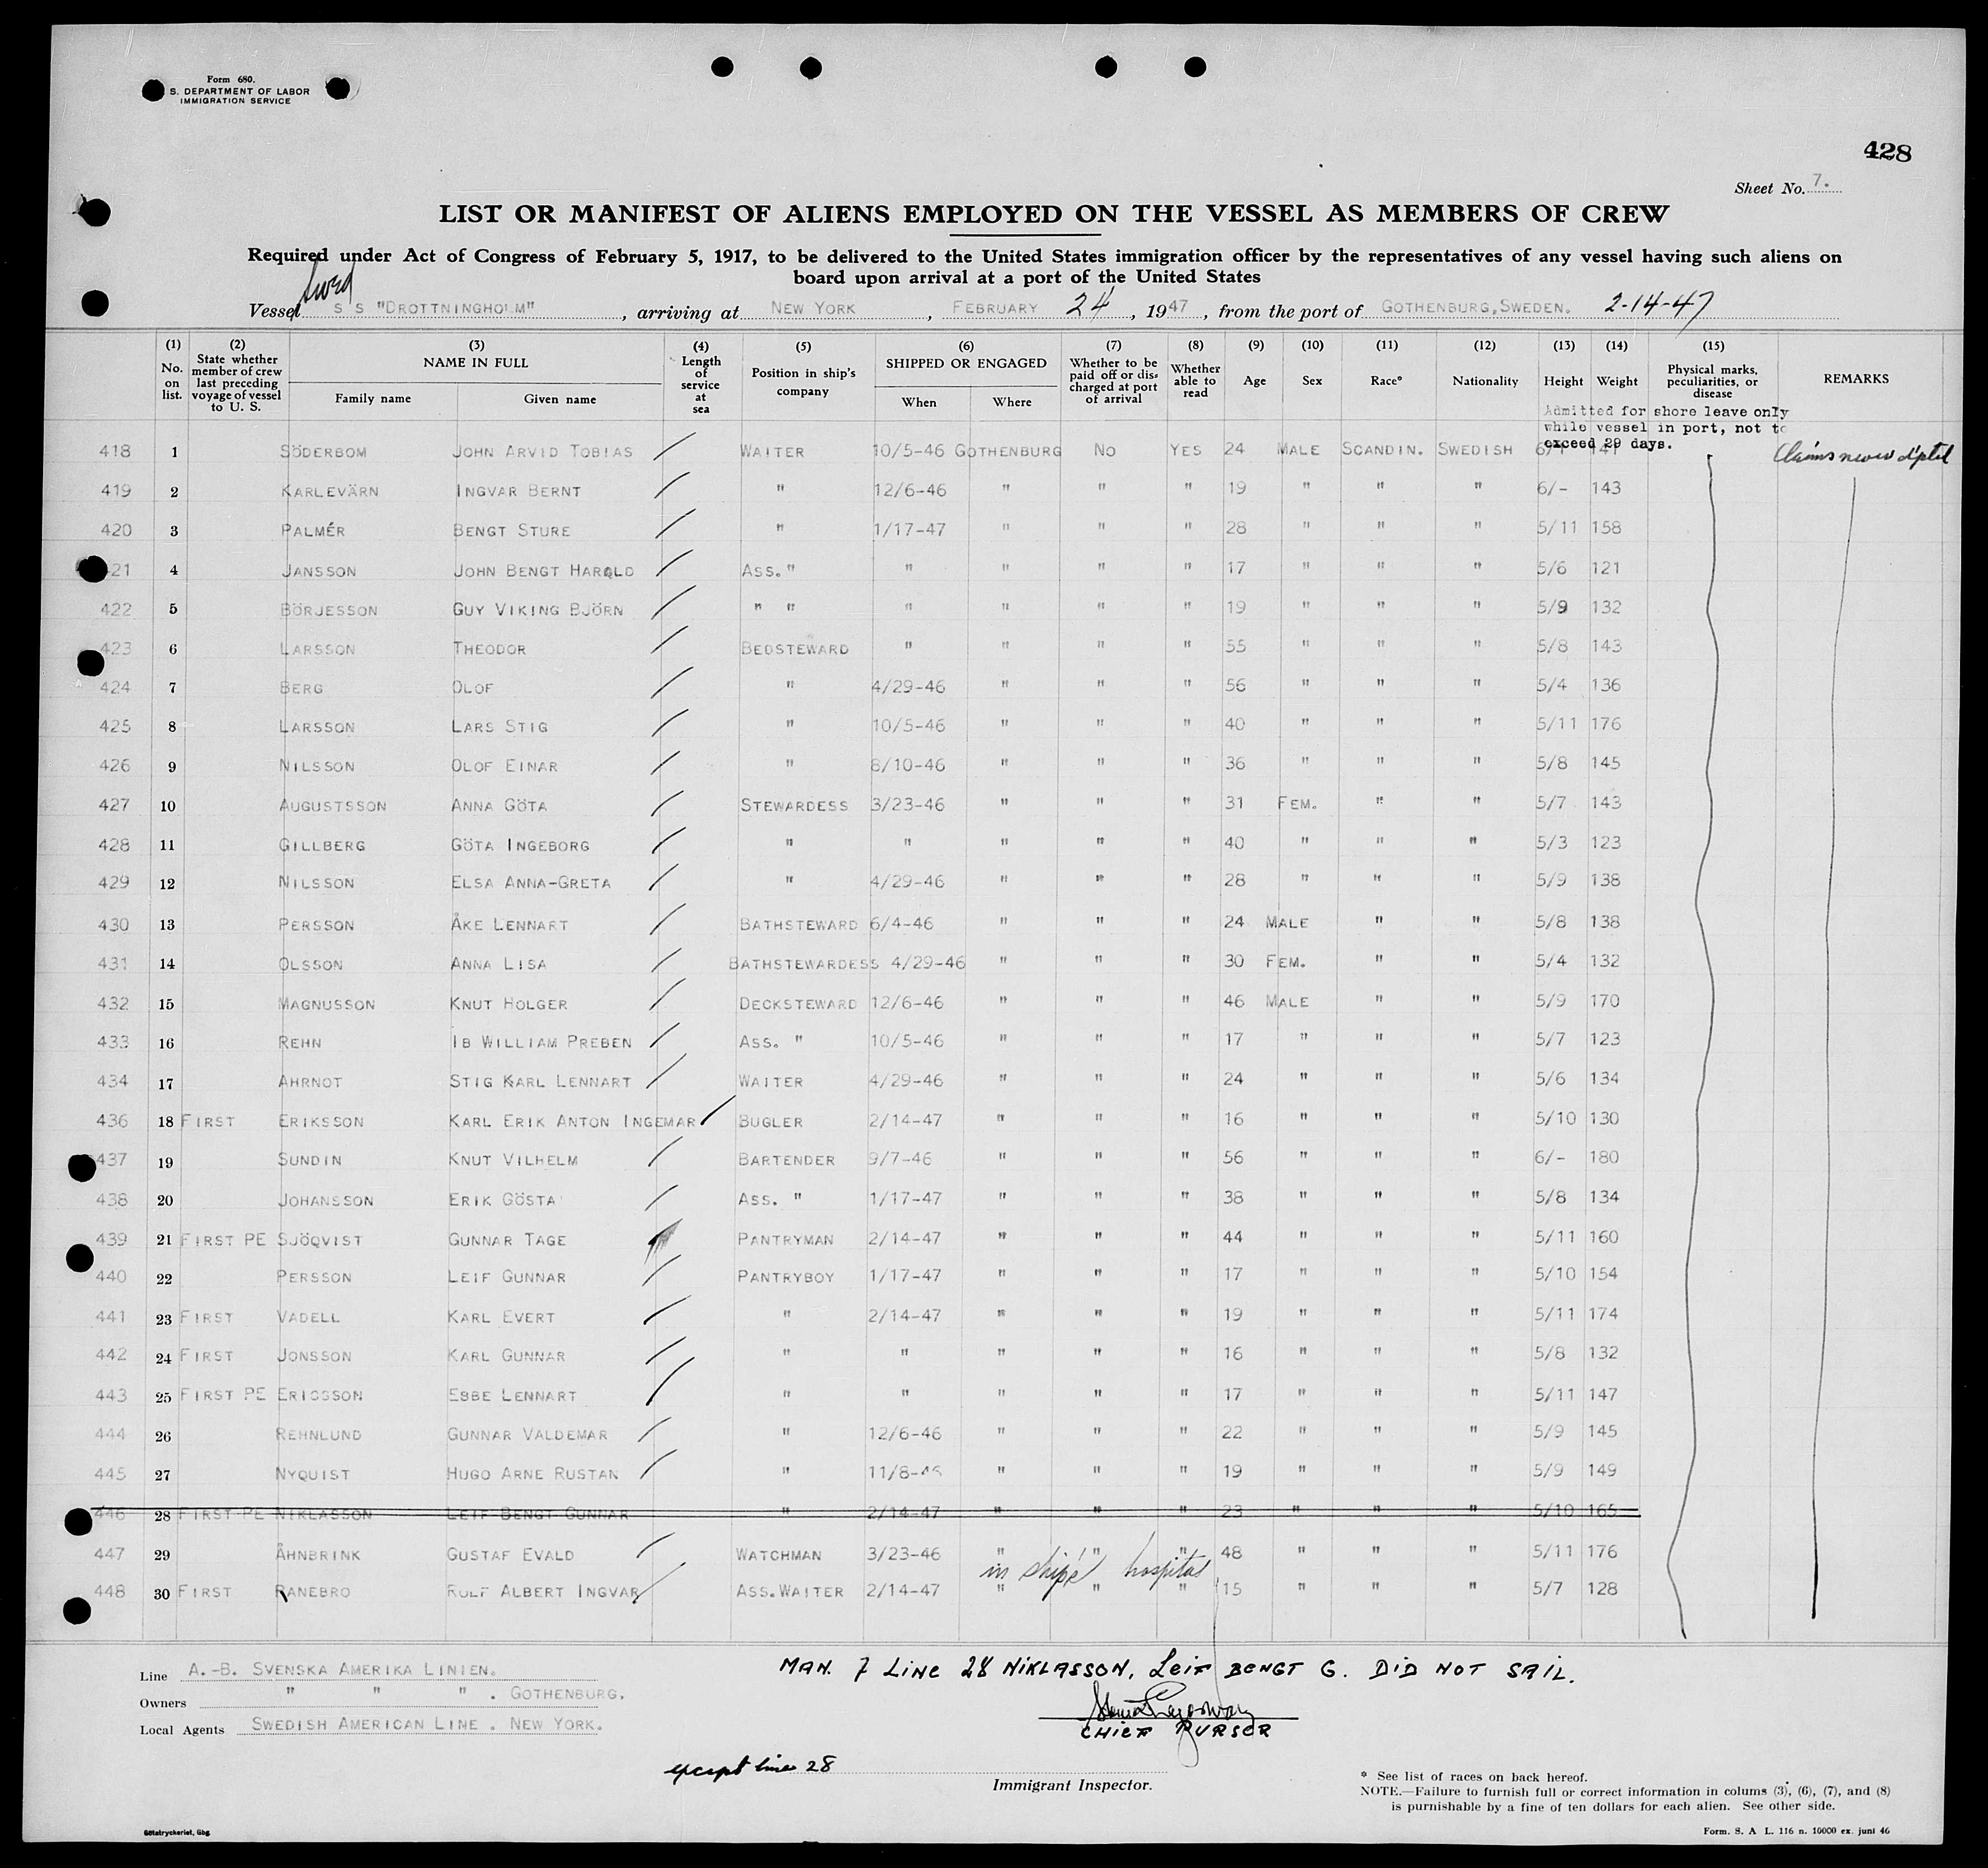 Form 680.
S. DEPARTMENT OF LABOR
IMMIGRATION SERVICE
428
Sheet No. 7.
LIST OR MANIFEST OF ALIENS EMPLOYED ON THE VESSEL AS MEMBERS OF CREW
Required under Act of Congress of February 5, 1917, to be delivered to the United States immigration officer by the representatives of any vessel having such aliens on
board upon arrival at a port of the United States
Swed
Vessel S S "DROTTNINGHOLM", arriving at NEW YORK, FEBRUARY 24, 1947, from the port of GOTHENBURG, SWEDEN. 2-14-47
(1) No. on list.
(2) State whether member of crew last preceding voyage of vessel to U. S.
(3) NAME IN FULL
Family name
Given name
(4) Length of service at sea
(5) Position in ship's company
(6) SHIPPED OR ENGAGED
When
Where
(7) Whether to be paid off or discharged at port of arrival
(8) Whether able to read
(9) Age
(10) Sex
(11) Race*
(12) Nationality
(13) Height
(14) Weight
(15) Physical marks, peculiarities, or disease
REMARKS
Admitted for shore leave only
while vessel in port, not to
exceed 29 days.
418 1 SÖDERBOM JOHN ARVID TOBIAS WAITER 10/5-46 GOTHENBURG NO YES 24 MALE SCANDIN. SWEDISH Claims never d'ptd
419 2 KARLEVÄRN INGVAR BERNT " 12/6-46 " " " 19 " " " 6/- 143
420 3 PALMÉR BENGT STURE " 1/17-47 " " " 28 " " " 5/11 158
21 4 JANSSON JOHN BENGT HAROLD ASS." " " " " 17 " " " 5/6 121
422 5 BÖRJESSON GUY VIKING BJÖRN " " " " " " 19 " " " 5/9 132
423 6 LARSSON THEODOR BEDSTEWARD " " " " 55 " " " 5/8 143
424 7 BERG OLOF " 4/29-46 " " " 56 " " " 5/4 136
425 8 LARSSON LARS STIG " 10/5-46 " " " 40 " " " 5/11 176
426 9 NILSSON OLOF EINAR " 8/10-46 " " " 36 " " " 5/8 145
427 10 AUGUSTSSON ANNA GÖTA STEWARDESS 3/23-46 " " " 31 FEM. " " 5/7 143
428 11 GILLBERG GÖTA INGEBORG " " " " " 40 " " " 5/3 123
429 12 NILSSON ELSA ANNA-GRETA " 4/29-46 " " " 28 " " " 5/9 138
430 13 PERSSON ÅKE LENNART BATHSTEWARD 6/4-46 " " " 24 MALE " " 5/8 138
431 14 OLSSON ANNA LISA BATHSTEWARDESS 4/29-46 " " " 30 FEM. " " 5/4 132
432 15 MAGNUSSON KNUT HOLGER DECKSTEWARD 12/6-46 " " " 46 MALE " " 5/9 170
433 16 REHN IB WILLIAM PREBEN ASS. " 10/5-46 " " " 17 " " " 5/7 123
434 17 AHRNOT STIG KARL LENNART WAITER 4/29-46 " " " 24 " " " 5/6 134
436 18 FIRST ERIKSSON KARL ERIK ANTON INGEMAR BUGLER 2/14-47 " " " 16 " " " 5/10 130
437 19 SUNDIN KNUT VILHELM BARTENDER 9/7-46 " " " 56 " " " 6/- 180
438 20 JOHANSSON ERIK GÖSTA ASS. " 1/17-47 " " " 38 " " " 5/8 134
439 21 FIRST PE SJÖQVIST GUNNAR TAGE PANTRYMAN 2/14-47 " " " 44 " " " 5/11 160
440 22 PERSSON LEIF GUNNAR PANTRYBOY 1/17-47 " " " 17 " " " 5/10 154
441 23 FIRST VADELL KARL EVERT " 2/14-47 " " " 19 " " " 5/11 174
442 24 FIRST JONSSON KARL GUNNAR " " " " " 16 " " " 5/8 132
443 25 FIRST PE ERICSSON EBBE LENNART " " " " " 17 " " " 5/11 147
444 26 REHNLUND GUNNAR VALDEMAR " 12/6-46 " " " 22 " " " 5/9 145
445 27 NYQUIST HUGO ARNE RUSTAN " 11/8-46 " " " 19 " " " 5/9 149
446 28 FIRST PE NIKLASSON LEIF BENGT GUNNAR " 2/14-47 " " " 23 " " " 5/10 165
447 29 ÅHNBRINK GUSTAF EVALD WATCHMAN 3/23-46 " " " 48 " " " 5/11 176
in ship's hospital
448 30 FIRST RANEBRO ROLF ALBERT INGVAR ASS.WAITER 2/14-47 " " " 15 " " " 5/7 128
Line A.-B. SVENSKA AMERIKA LINIEN.
Owners " " " . GOTHENBURG.
Local Agents SWEDISH AMERICAN LINE . NEW YORK.
MAN. 7 LINE 28 NIKLASSON, LEIF BENGT G. DID NOT SAIL.
CHIEF PURSER
except line 28
Immigrant Inspector.
* See list of races on back hereof.
NOTE.—Failure to furnish full or correct information in colums (3), (6), (7), and (8)
is purnishable by a fine of ten dollars for each alien. See other side.
Götatryckeriet, Gbg
Form. S. A L. 116 n. 10000 ex. juni 46